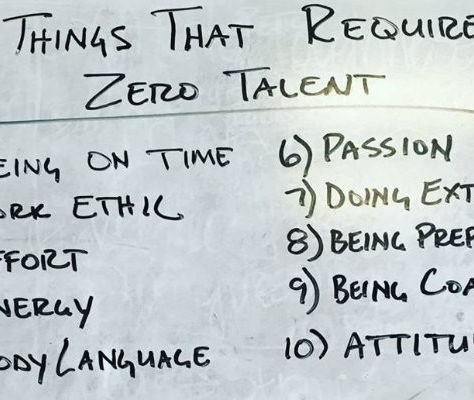 THINGS THAT REQUIRE
ZERO TALENT
EING ON TIME
ORK ETHIC
FFORT
NERGY
ODY LANGUAGE
6) PASSION
7) DOING EXT
8) BEING PREP
9) BEING COA
10) ATTITU